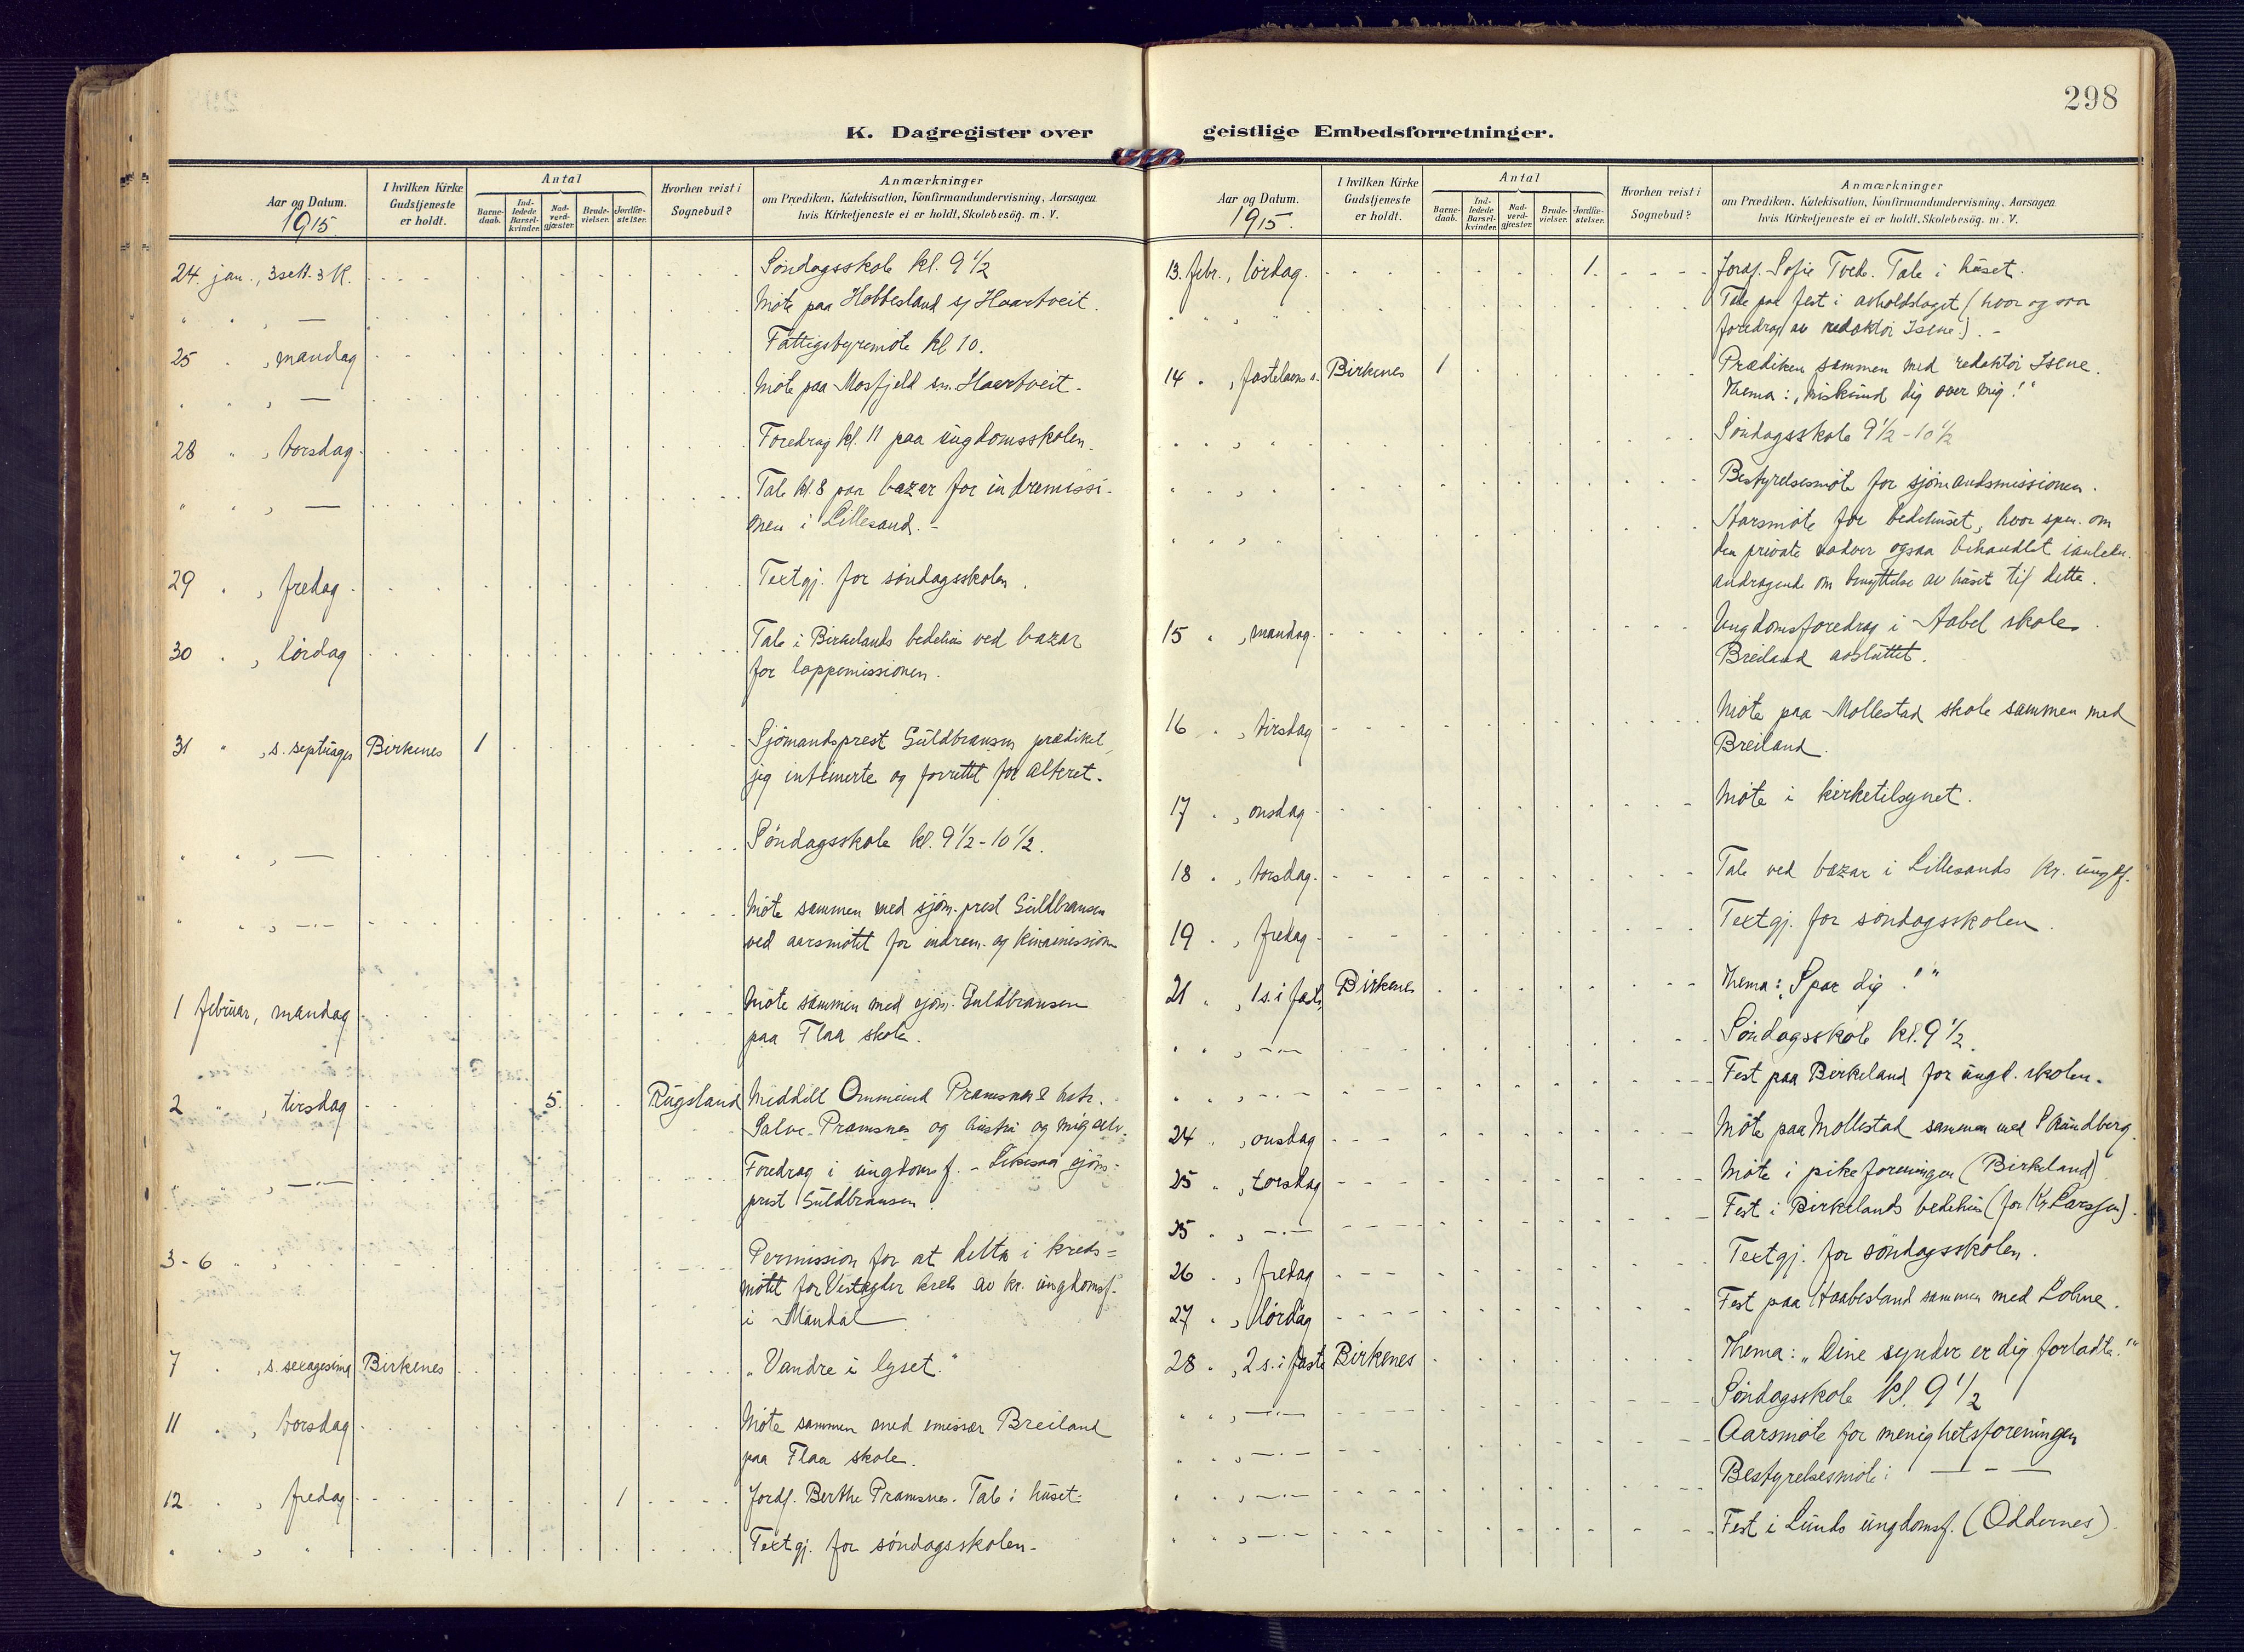 298
K. Dagregister over
geistlige Embedsforretninger.
Aar og Datum.
1915.
I hvilken Kirke Gudstjeneste er holdt.
Antal
Barne-daab.
Ind-ledede Barsel-kvinder.
Nad-verd-gjæster.
Brude-vielser.
Jordfæ-stelser.
Hvorhen reist i Sognebud?
Anmærkninger
om Prædiken, Katekisation, Konfirmandundervisning, Aarsagen
hvis Kirketjeneste ei er holdt, Skolebesøg. m. V.
24. jan., 3 s e H. 3 K. Söndagsskole kl. 9 1/2
" " , — Möte paa Hobbesland s/ Haartveit.
25 " , mandag Fattigstyremöte kl 10.
" " , — Möte paa Mosfjeld sm. Haartveit.
28 " , torsdag Foredrag kl. 11 paa ungdomsskolen.
" " , — Tale kl. 8 paa bazar for indremissi-
onen i Lillesand. -
29 " , fredag Textgj. for söndagsskolen.
30 " , lördag Tale i Birkelands bedehus ved bazar
for lappemissionen.
31 " , s. septuages Birkenes 1 Sjömandsprest Guldbransen prædiket,
jeg intimerte og forrettet for alteret.
" " , — Söndagsskole kl. 9 1/2 - 10 1/2.
" " , — Möte sammen med sjöm. prest Guldbransen
ved aarsmötet for indrem. og kinamission
1 februar, mandag Möte sammen med sjöm. Guldbransen
paa Flaa skole.
2 " , tirsdag 5. Rugsland Meddelt Ommund Pramsnes & hstr.
Salve Pramsnes og hustru og mig selv.
" " , — Foredrag i ungdomsf. - Likesaa sjöm-
prest Guldbransen.
3 - 6 " , Permission for at delta i kreds=
mötet for Vestagder kreds av kr. ungdomsf.
i Mandal
7 " , s. sexagesima Birkenes "Vandre i lyset."
11 " , torsdag Möte sammen med emissær Breiland
paa Flaa skole.
12 " , fredag 1 Jordf. Berthe Pramsnes. Tale i huset.
" " , " Textgj. for söndagsskolen.
Aar og Datum.
1915.
I hvilken Kirke Gudstjeneste er holdt.
Antal
Barne-daab.
Ind-ledede Barsel-kvinder.
Nad-verd-gjæster.
Brude-vielser.
Jordfæ-stelser.
Hvorhen reist i Sognebud?
Anmærkninger
om Prædiken, Katekisation, Konfirmandundervisning, Aarsagen
hvis Kirketjeneste ei er holdt, Skolebesøg. m. V.
13. febr., lördag. 1. Jordf. Sofie Tvede. Tale i huset.
" " , " Tale paa fest i avholdslaget (hvor ogsaa
foredrag av redaktör Isene). -
14 " , fastelavns s. Birkenes 1 Prædiken sammen med redaktör Isene.
Thema: "Miskund dig over mig!"
" " , " Söndagsskole 9 1/2 - 10 1/2
" " , " Bestyrelsesmöte for sjömandsmissionen.
" " , " Aarsmöte for bedehuset, hvor spm. om
den private nadver ogsaa behandlet i anledn.
andragende om benyttelse av huset til dette.
15 " , mandag. Ungdomsforedrag i Aabel skole.
Breiland avsluttet.
16 " , tirsdag Möte paa Mollestad skole sammen med
Breiland.
17 " , onsdag Möte i kirketilsynet.
18 " , torsdag. Tale ved bazar i Lillesands kr. ungdf.
19 " , fredag Textgj. for söndagsskolen.
21 " , 1 s. i fast. Birkenes Thema: "Spar dig!"
" " , — Söndagsskole kl. 9 1/2.
" " , — Fest paa Birkeland for ungd. skolen.
24 " , onsdag Möte paa Mollestad sammen med Strandberg.
25 " , torsdag Möte i pikeforeningen (Birkeland)
25 " , — Fest i Birkelands bedehus (for Kr. Larssen).
26 " , fredag Textgj. for söndagsskolen.
27 " , lördag Fest paa Haabesland sammen med Lohne.
28 " , 2 s. i faste Birkenes Thema: "Dine synder er dig forladte."
" " , — Söndagsskole kl. 9 1/2
" " , — Aarsmöte for menighetsforeningen
" " , — Bestyrelsesmöte: — — —
" " , — Fest i Lunds ungdomsf. (Oddernes).